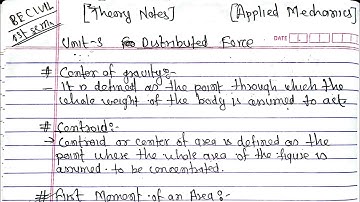 BE CIVIL
1st sem
[Theory Notes]
[Applied Mechanics]
Unit-3 Distributed Force
DATE
# Center of gravity:-
- It is defined as the point through which the
whole weight of the body is assumed to act.
# Centroid:-
→ Centroid or center of area is defined as the
point where the whole area of the figure is
assumed to be concentrated.
# First Moment of an Area:-